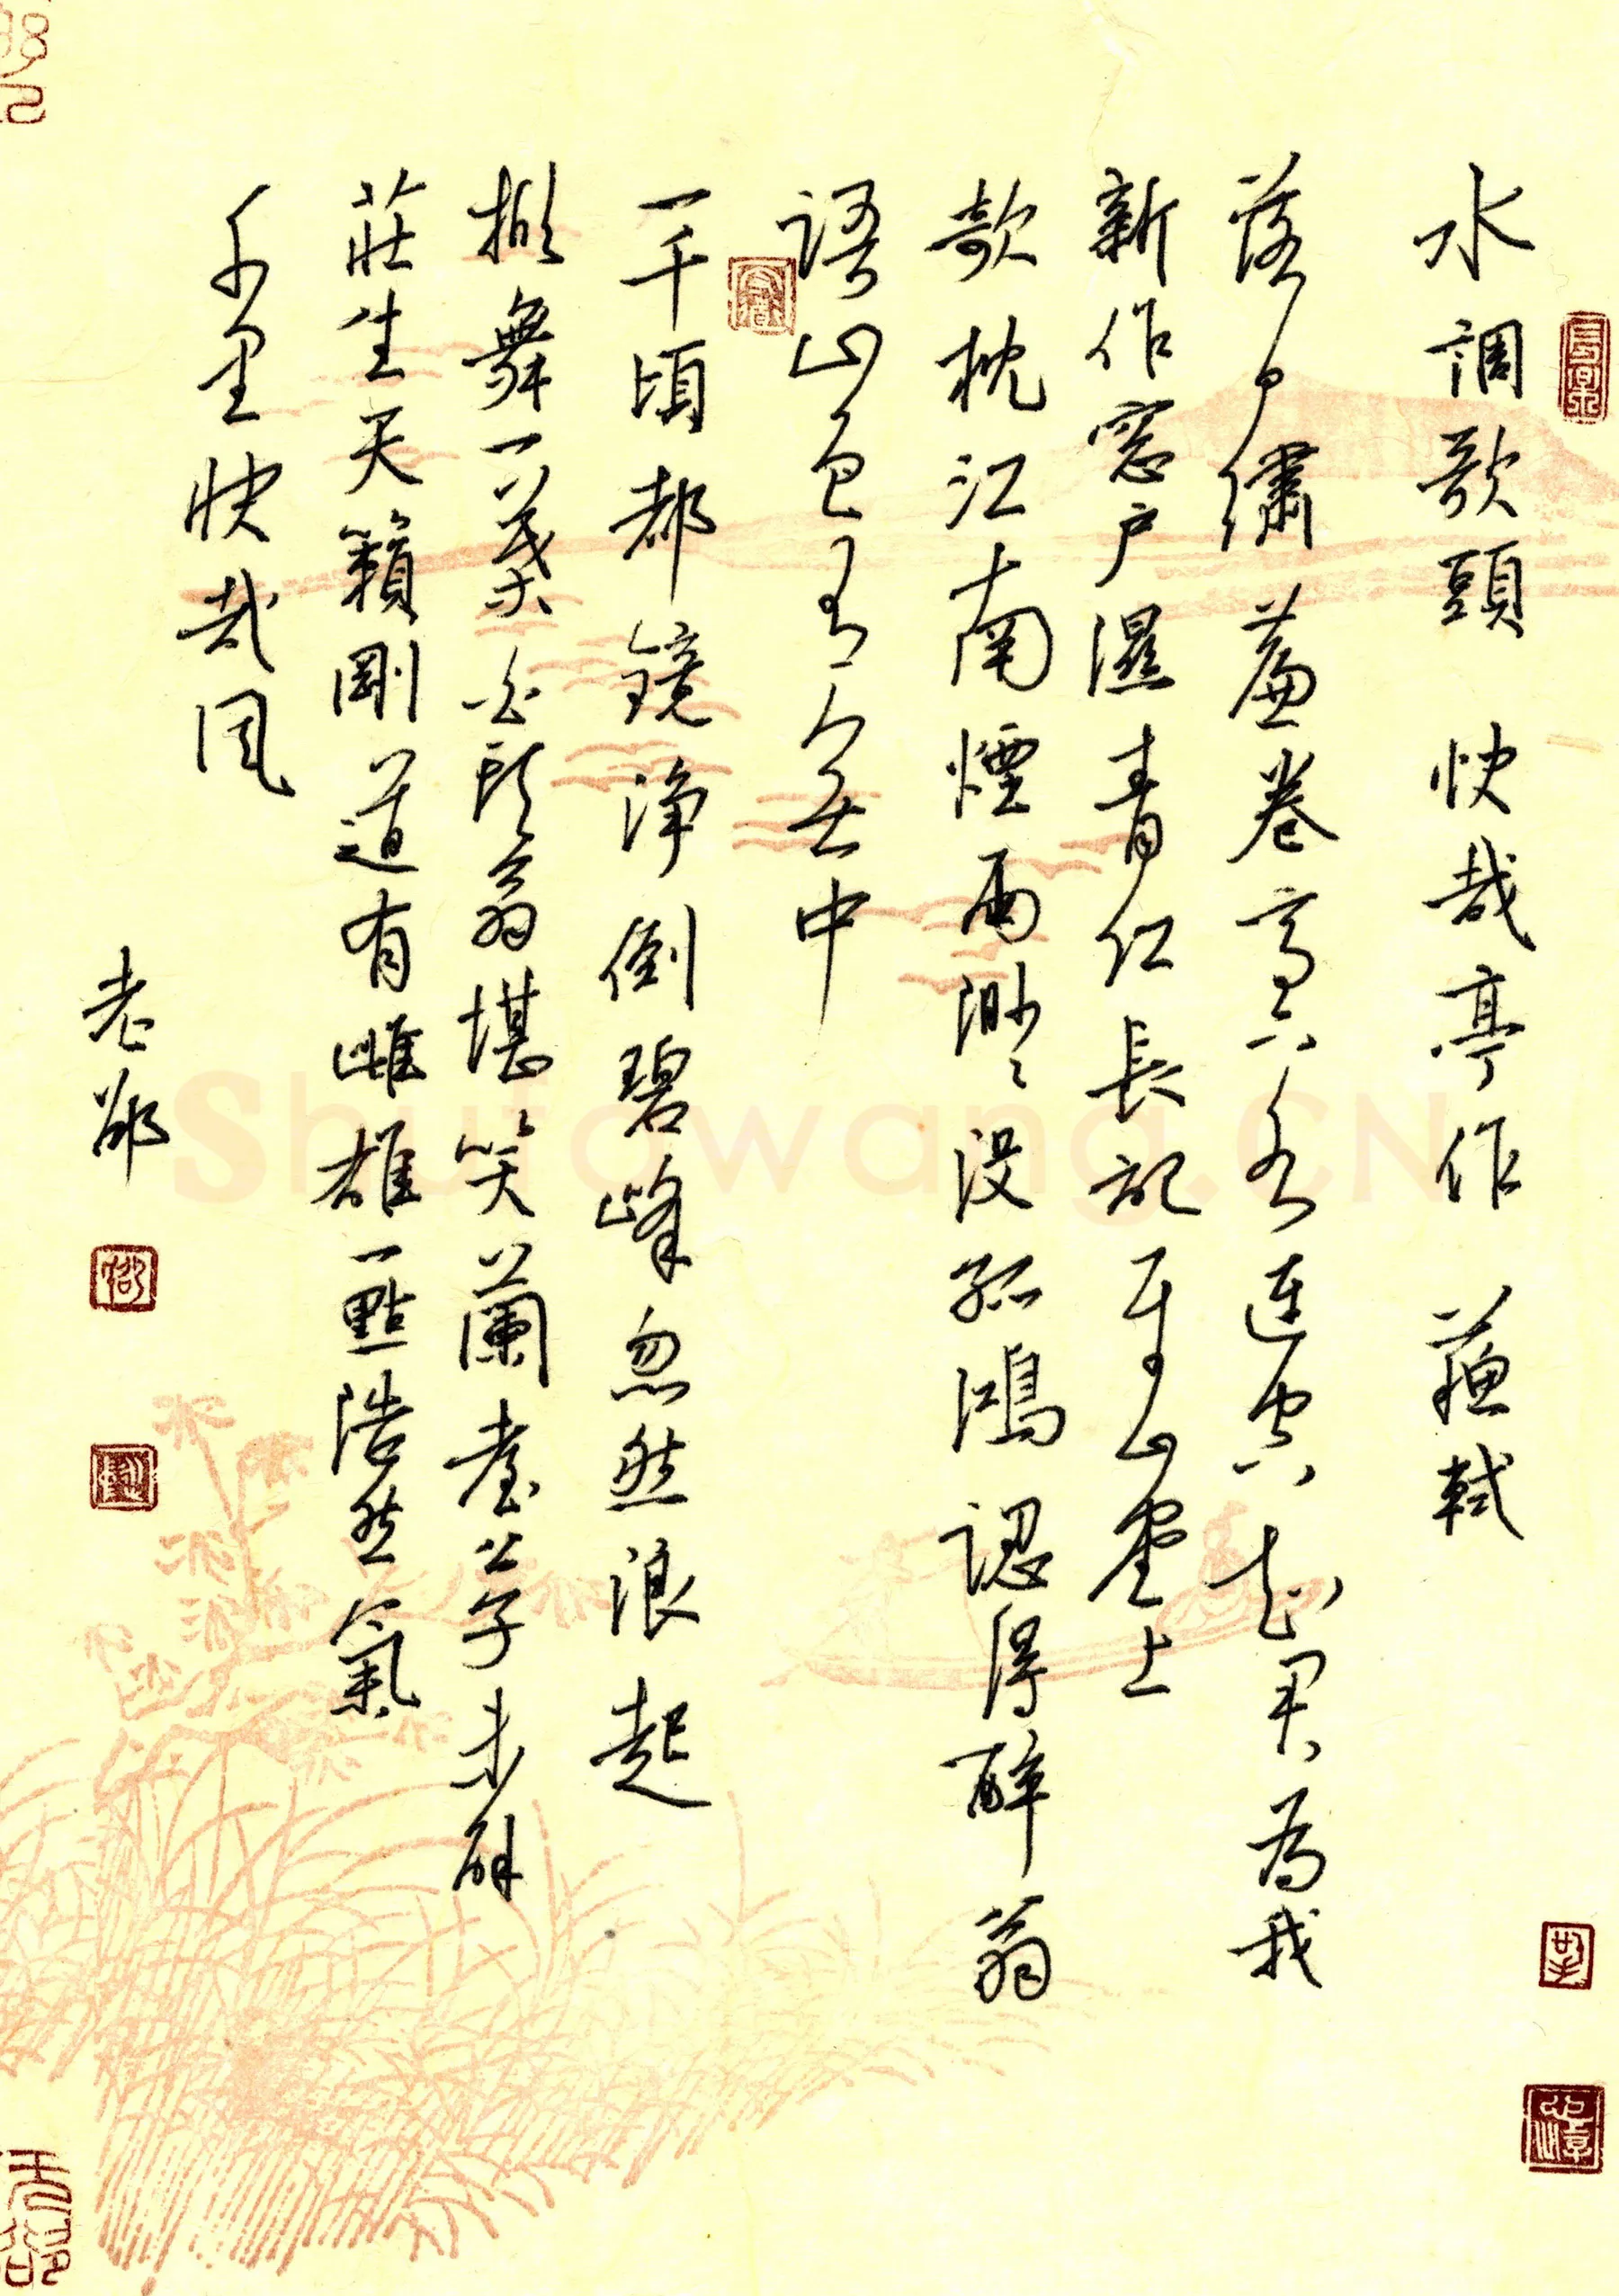 水調歌頭 快哉亭作 蘇軾
落日繡簾卷亭下水連空知君為我
新作窓戶濕青紅長記平山堂上
欹枕江南煙雨渺〻沒孤鴻認得醉翁
語山色有無中
一千頃都鏡浄倒碧峰忽然浪起
掀舞一葉白頭翁堪笑蘭臺公子未解
莊生天籟剛道有雌雄一點浩然氣
千里快哉風
老邵
Shufawang.CN